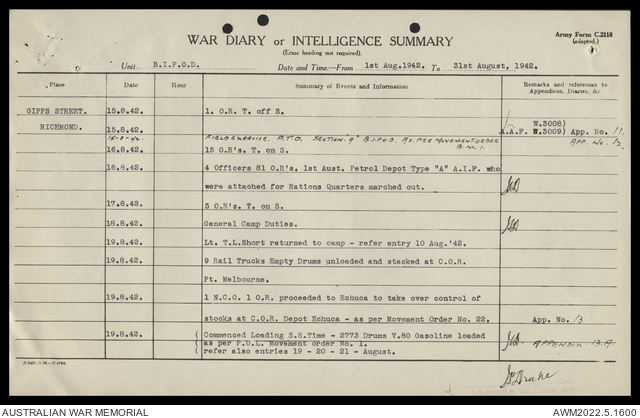 Army Form C.2118
(adapted.)
WAR DIARY or INTELLIGENCE SUMMARY
(Erase heading not required).
Unit B.I.P.O.D. Date and Time.—From 1st Aug.1942. To 31st August, 1942.
Place Date Hour Summary of Events and Information Remarks and references to Appendices, Diaries, &c
GIPPS STREET. 15.8.42. 1. O.R. T. off S.
RICHMOND. 15.8.42. W.3008)
A.A.F. W.3009) App. No. 11.
15-8-42 FIELD EXERCISE P.T.O. SECTION "A" B.I.P.O.D. AS PER MOVEMENT ORDER B.M.1. App. No. 12
16.8.42. 15 O.R's. T. on S.
16.8.42. 4 Officers 81 O.R's. 1st Aust. Petrol Depot Type "A" A.I.F. who
were attached for Rations Quarters marched out.
17.8.42. 5 O.R's. T. on S.
18.8.42. General Camp Duties.
19.8.42. Lt. T.L.Short returned to camp - refer entry 10 Aug.'42.
19.8.42. 9 Rail Trucks Empty Drums unloaded and stacked at C.O.R.
Pt. Melbourne.
19.8.42. 1 N.C.O. 1 O.R. proceeded to Echuca to take over control of
stocks at C.O.R. Depot Echuca - as per Movement Order No. 22. App. No. 13
19.8.42. (Commenced Loading S.S.Time - 2773 Drums V.80 Gasoline loaded APPENDIX 13.A
(as per P.O.L. Movement order No. 1.
(refer also entries 19 - 20 - 21 - August.
AUSTRALIAN WAR MEMORIAL AWM2022.5.1600